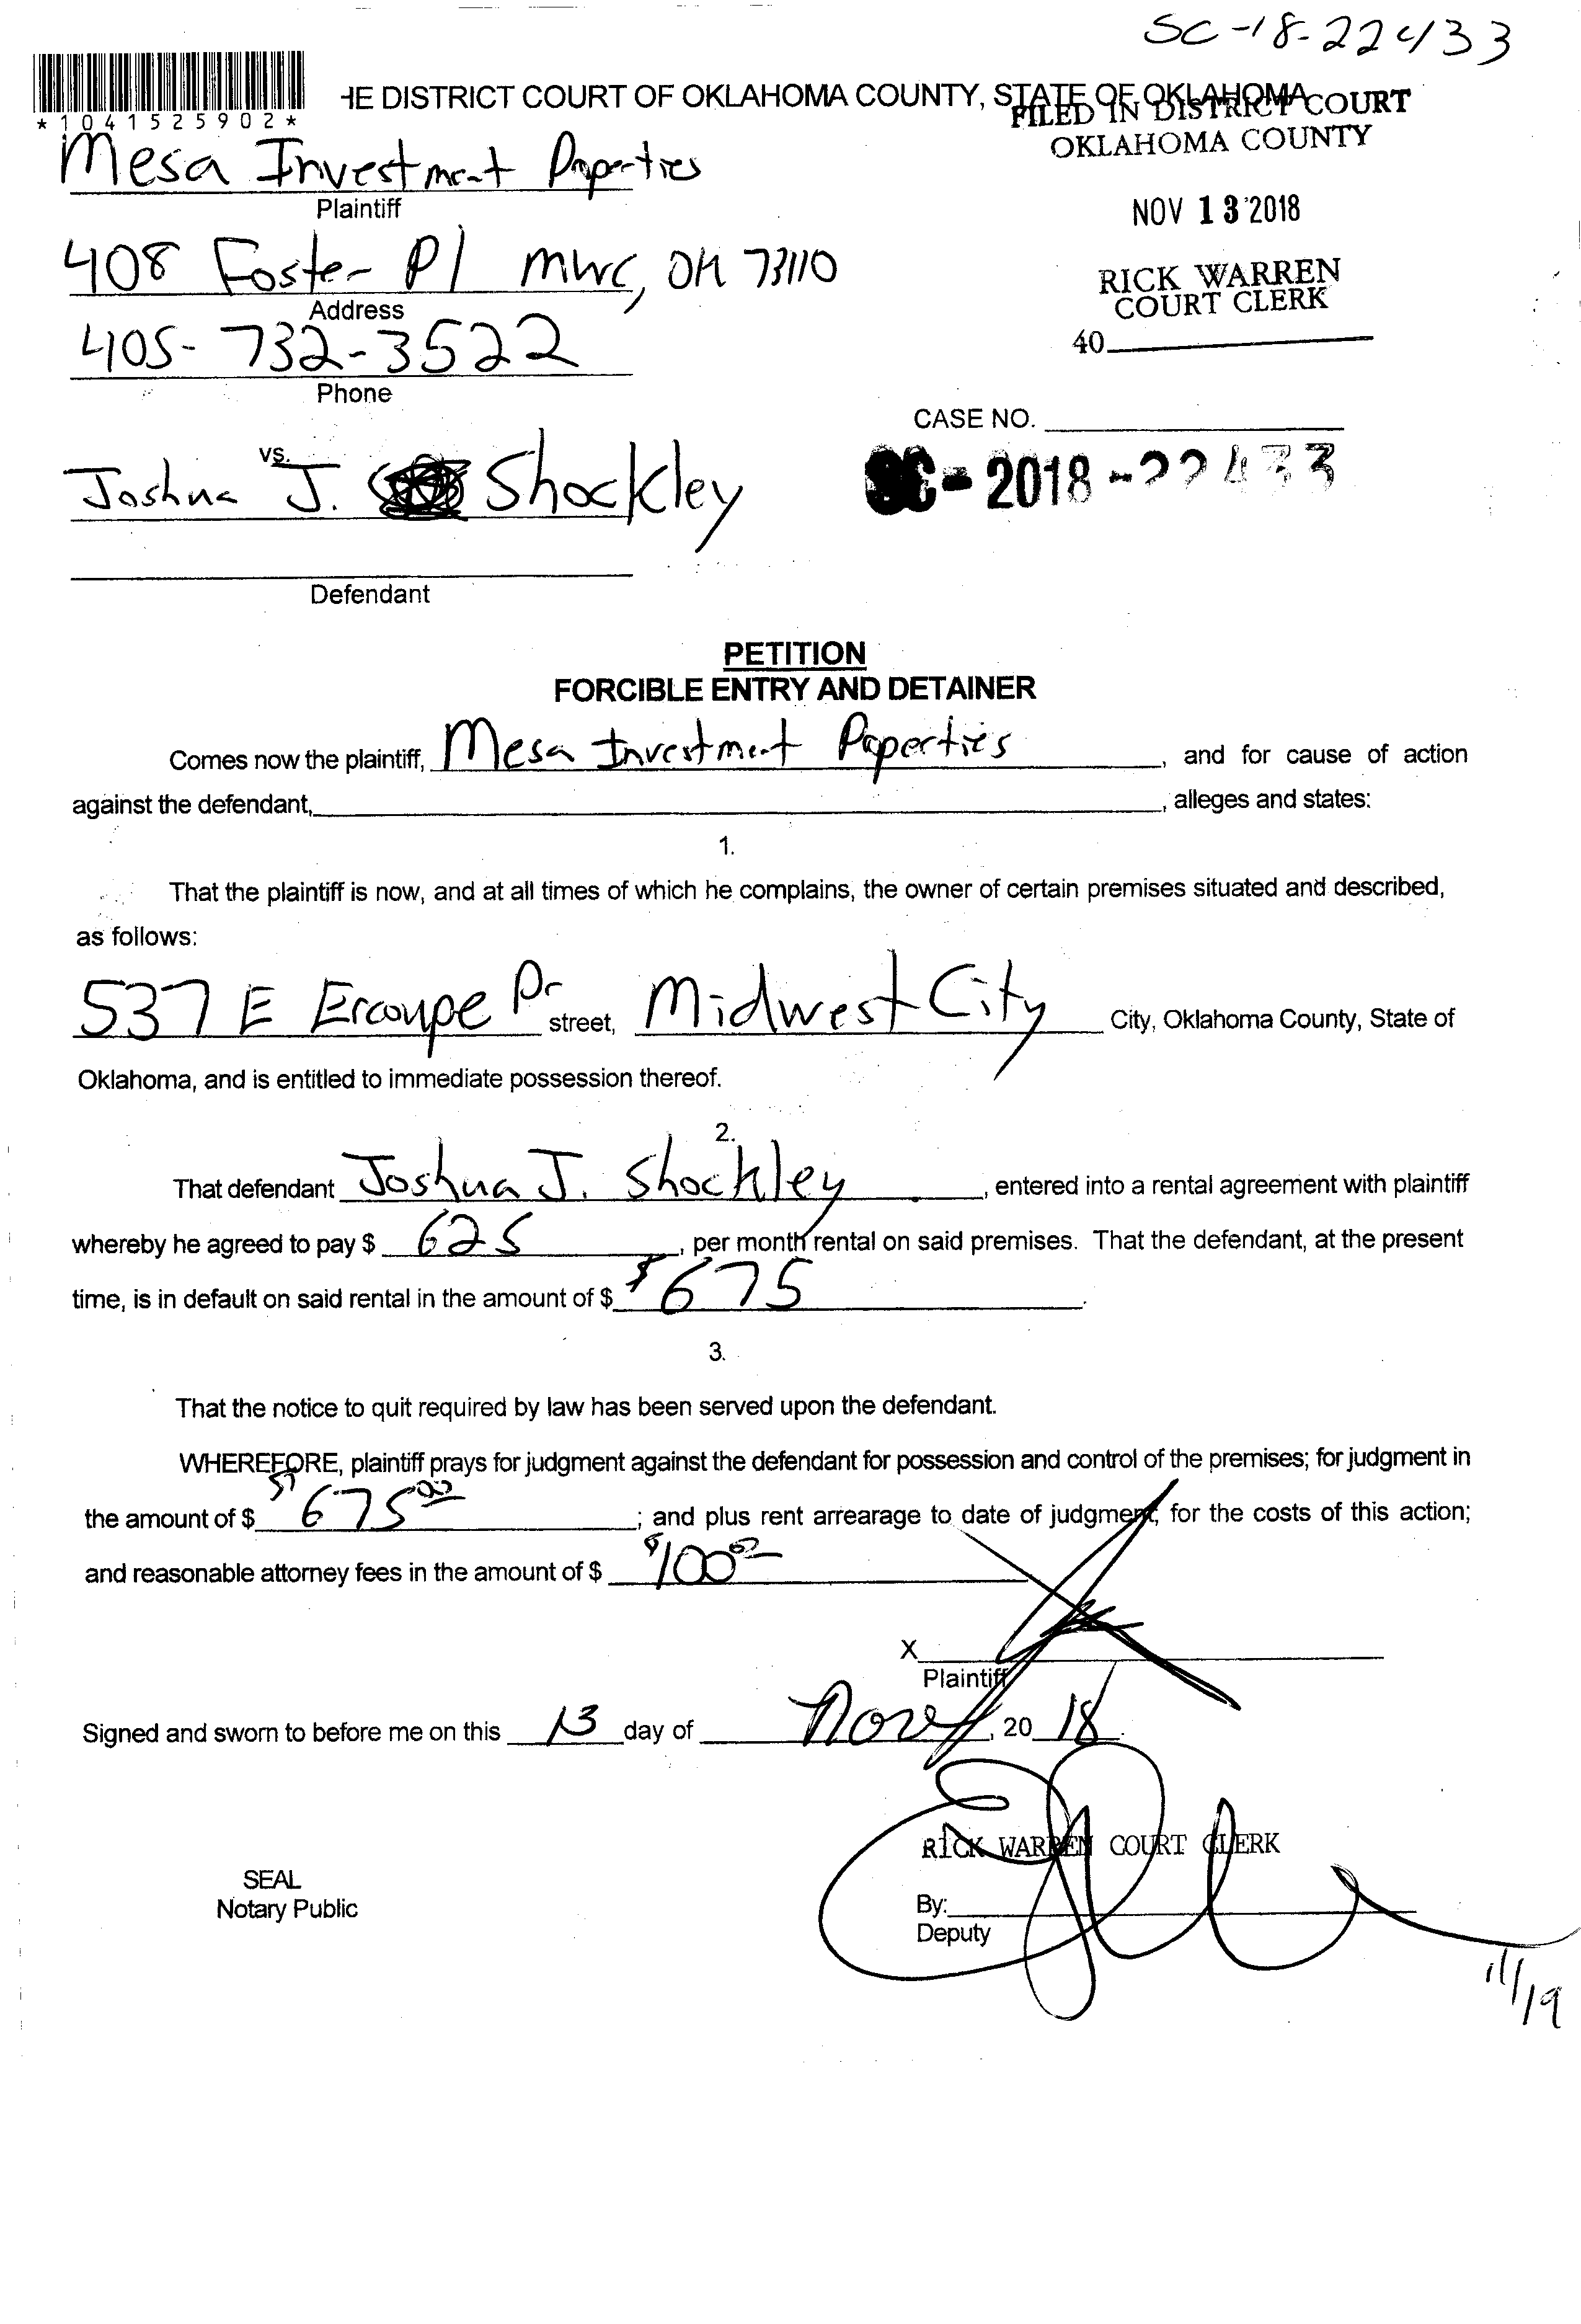 SC-18-22433
*1041525902*
HE DISTRICT COURT OF OKLAHOMA COUNTY, STATE OF OKLAHOMA
FILED IN DISTRICT COURT
OKLAHOMA COUNTY
Mesa Investment Properties
Plaintiff
NOV 13 2018
408 Foster Pl MWC, OK 73110
Address
RICK WARREN
COURT CLERK
405-732-3522
40
Phone
CASE NO.
vs.
Joshua J. Shockley
SC-2018-22433
Defendant
PETITION
FORCIBLE ENTRY AND DETAINER
Comes now the plaintiff, Mesa Investment Properties, and for cause of action
against the defendant, , alleges and states:
1.
That the plaintiff is now, and at all times of which he complains, the owner of certain premises situated and described,
as follows:
537 E Ercoupe Dr street, Midwest City City, Oklahoma County, State of
Oklahoma, and is entitled to immediate possession thereof.
2.
That defendant Joshua J. Shockley, entered into a rental agreement with plaintiff
whereby he agreed to pay $ 625, per month rental on said premises. That the defendant, at the present
time, is in default on said rental in the amount of $ $675.
3.
That the notice to quit required by law has been served upon the defendant.
WHEREFORE, plaintiff prays for judgment against the defendant for possession and control of the premises; for judgment in
the amount of $ $675.00; and plus rent arrearage to date of judgment; for the costs of this action;
and reasonable attorney fees in the amount of $ $100.00
X
Plaintiff
Signed and sworn to before me on this 13 day of Nov, 20 18.
RICK WARREN COURT CLERK
SEAL
Notary Public
By:
Deputy
11/19